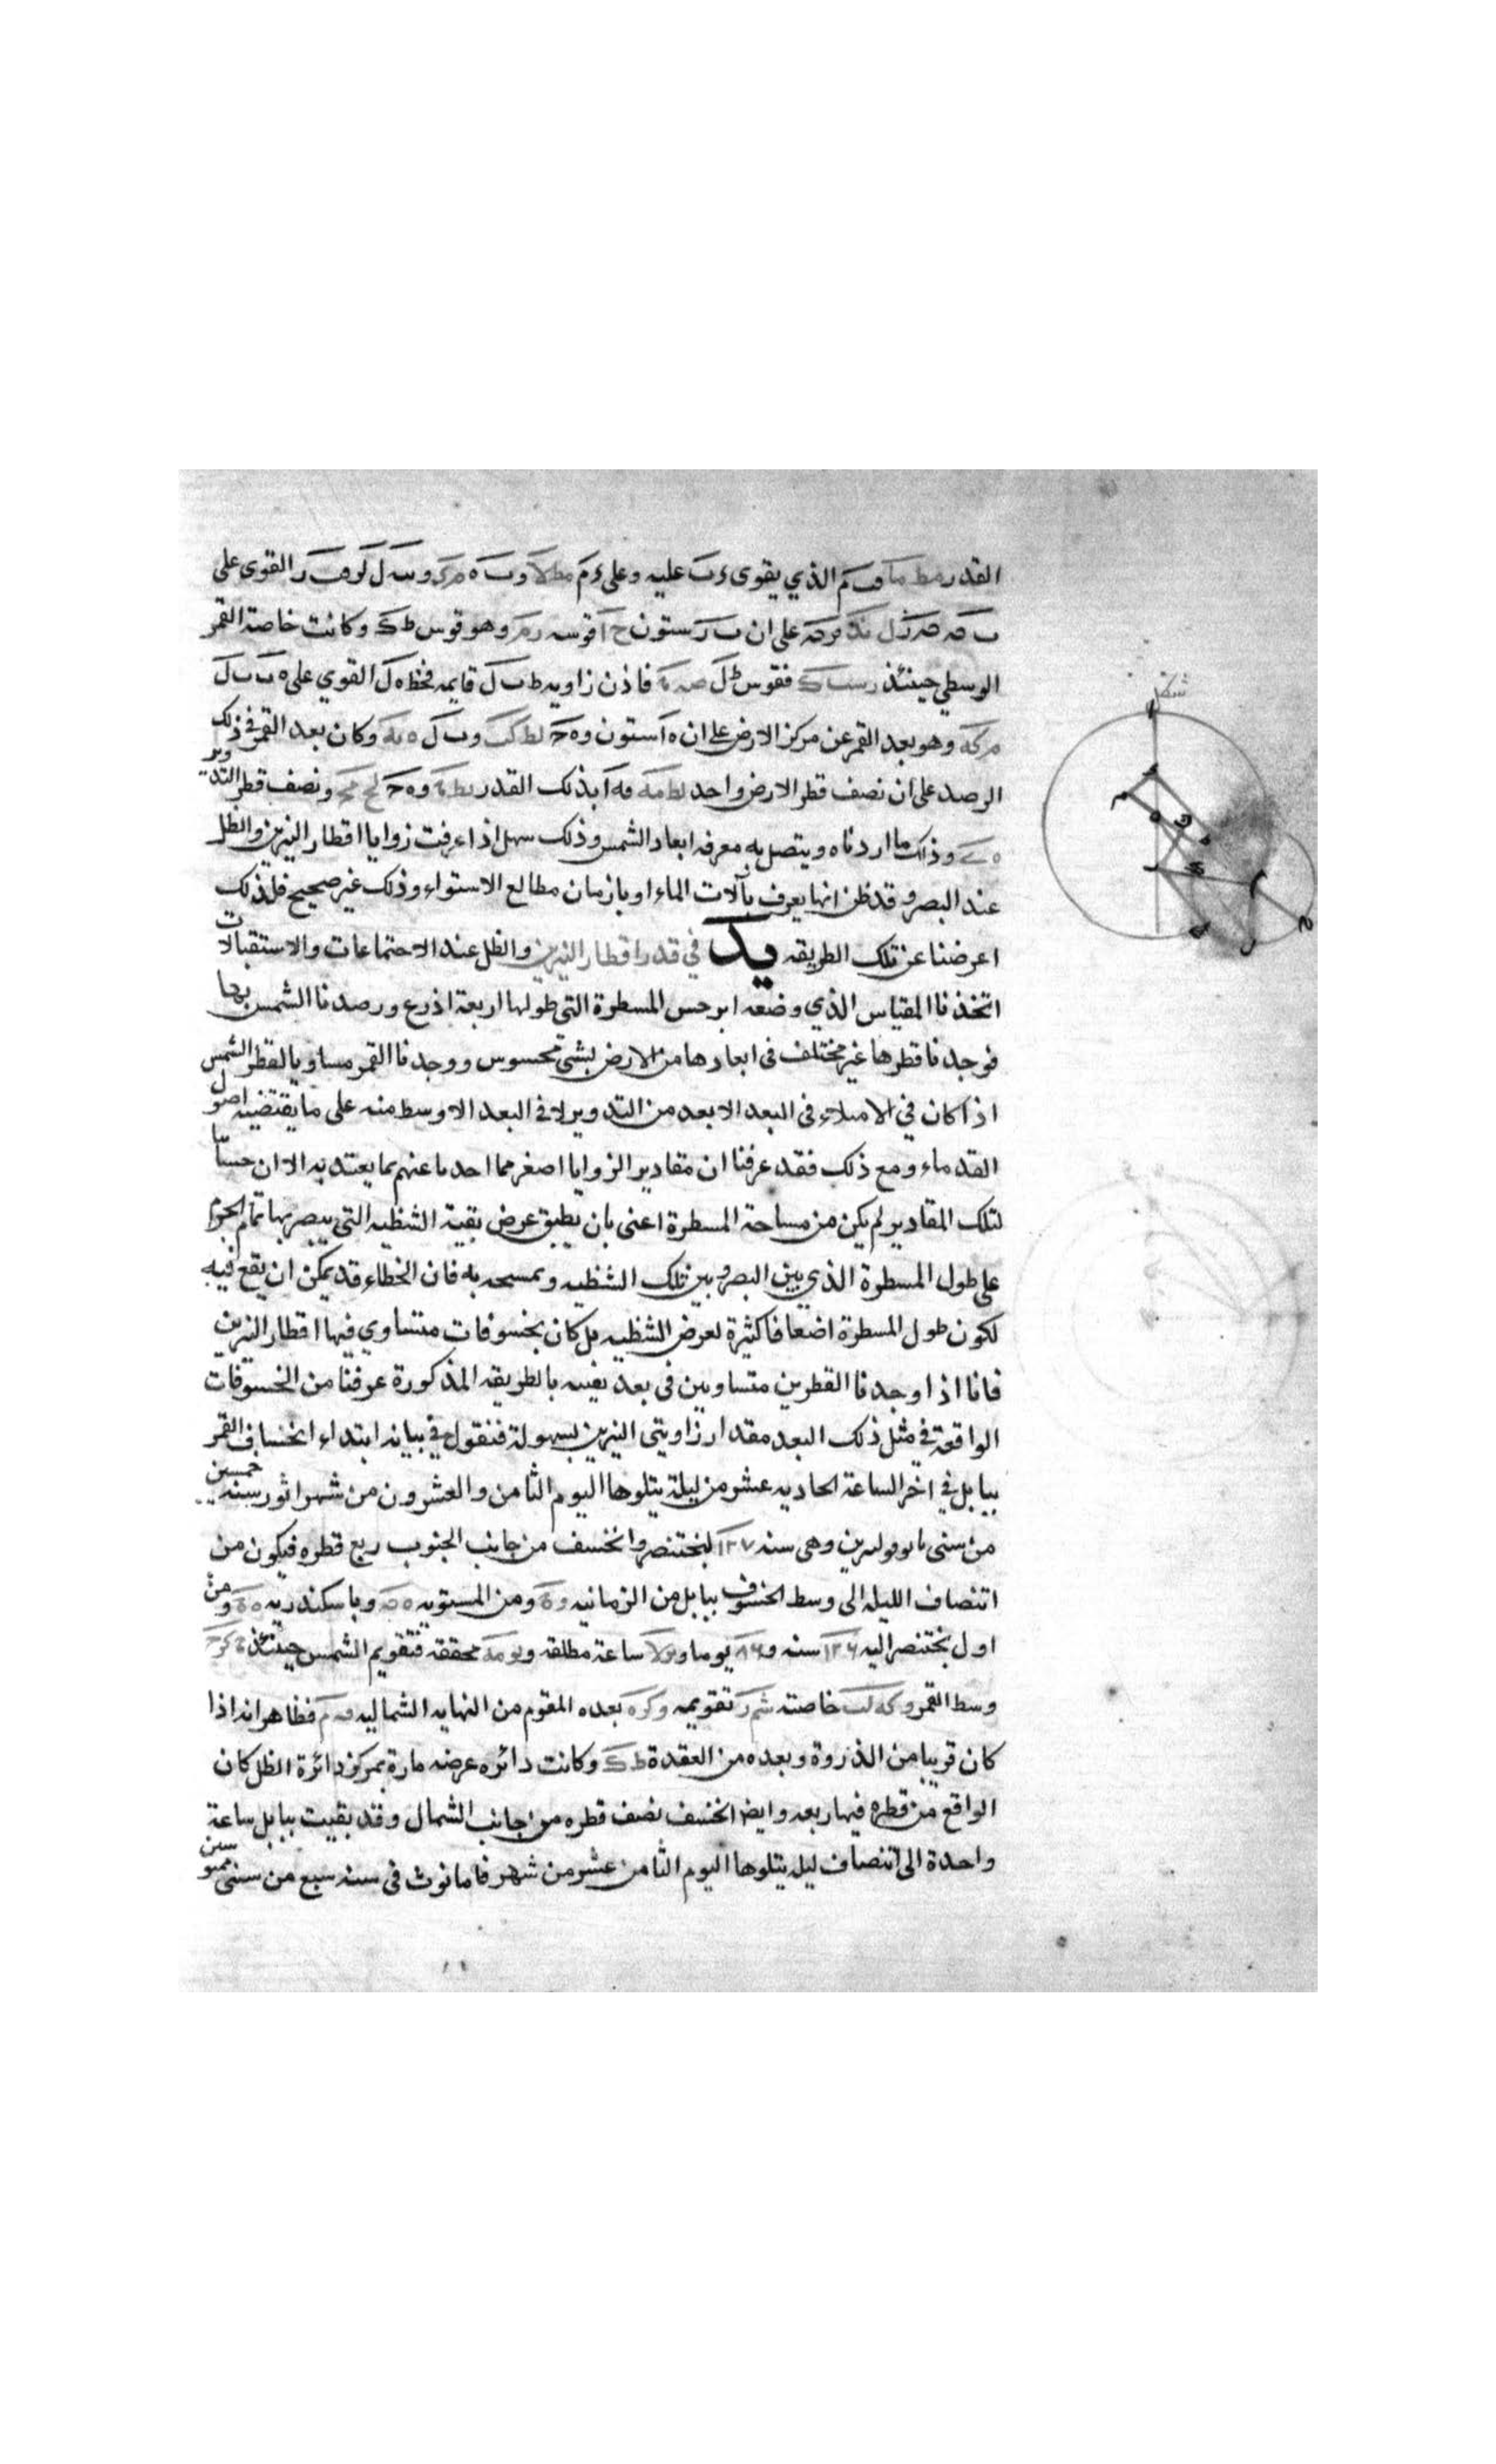 القدر مط ما وب م الذي يقوى ءب عليه وعلى ءم مطلا وب ه مر وسه ل القوى على
على ان ب ر ستون ح ا قوسه رمر وهو قوس ط ك وكانت خاصة القمر
الوسطي حينئذ فقوس ط ل فاذن زاويه ط ب ل قايمه فخط ه ل القوي على ه ب ب ل
م كه وهو بعد القمر عن مركز الارض على ان ه ا ستون و ه ح لط كب و ب ل ه يه وكان بعد القمر في ذلك
الرصد على ان نصف قطر الارض واحد لط مه فه ا بذلك القدر نط و ه ح لح مح ونصف قطر التدوير
ه ى وذلك ما اردناه ويتصل به معرفه ابعاد الشمس وذلك سهل اذا عرفت زوايا اقطار النيرين والظل
عند البصر وقد ظن انها يعرف بآلات الماء او بازمان مطالع الاستواء وذلك غير صحيح فلذلك
اعرضنا عن تلك الطريقه يد في قدر اقطار النيرين والظل عند الاجتماعات والاستقبالات
اتخذنا المقياس الذي وضعه ابرخس المسطرة التي طولها اربعة اذرع ورصدنا الشمس بها
فوجدنا قطرها غير مختلف فى ابعادها من الارض بشئ محسوس ووجدنا القمر مساويا لقطر الشمس
اذا كان في الامتلاء فى البعد الابعد من التدوير لا في البعد الاوسط منه على ما يقتضيه اصول
القدماء ومع ذلك فقد عرفنا ان مقادير الزوايا اصغر مما احد ما عنهم بما يعتد به الا ان حسابنا
لتلك المقادير لم يكن من مساحة المسطرة اعنى بان يطبق عرض بقية الشظيه التى يبصر بها تمام الجرم
على طول المسطرة الذي بين البصر وبين تلك الشظيه ويمسحه به فان الخطاء قد يمكن ان يقع فيه
لكون طول المسطرة اضعافا كثيرة لعرض الشظيه بل كان بخسوفات متساوي فيها اقطار النيرين
فانا اذا وجدنا القطرين متساويين فى بعد بعينه بالطريقه المذكورة عرفنا من الخسوفات
الواقعة في مثل ذلك البعد مقدار زاويتى النيرين بسهولة فنقول في بيانه ابتداء انخساف القمر
ببابل في اخر الساعة الحاديه عشر من ليلة يتلوها اليوم الثامن والعشرون من شهر اثور سنه خمسين
من سنى نابوبولسرين وهى سنه ١٢٧ لبختنصر وانخسف من جانب الجنوب ربع قطره فيكون من
انتصاف الليله الى وسط الخسوف ببابل من الزمانيه و ه ومن المستويه ه ن وباسكندريه ه ه ومن
اول بختنصر اليه ١٢٦ سنه و ٨٦ يوما و ساعة مطلقه و يو مه محققه فتقويم الشمس حينئذ كز ح
وسط القمر و كه لب خاصته شم ر تقويمه و كز ه بعده المقوم من النهايه الشماليه ف م فظاهر انه اذا
كان قريبا من الذروة وبعده من العقدة ط ك وكانت دائره عرضه مارة بمركز دائرة الظل كان
الواقع من قطره فيها ربعه وايضا انخسف نصف قطره من جانب الشمال وقد بقيت ببابل ساعة
واحدة الى انتصاف ليله يتلوها اليوم الثامن عشر من شهر فامانوث فى سنه سبع من سنى قمبوسس
شكل